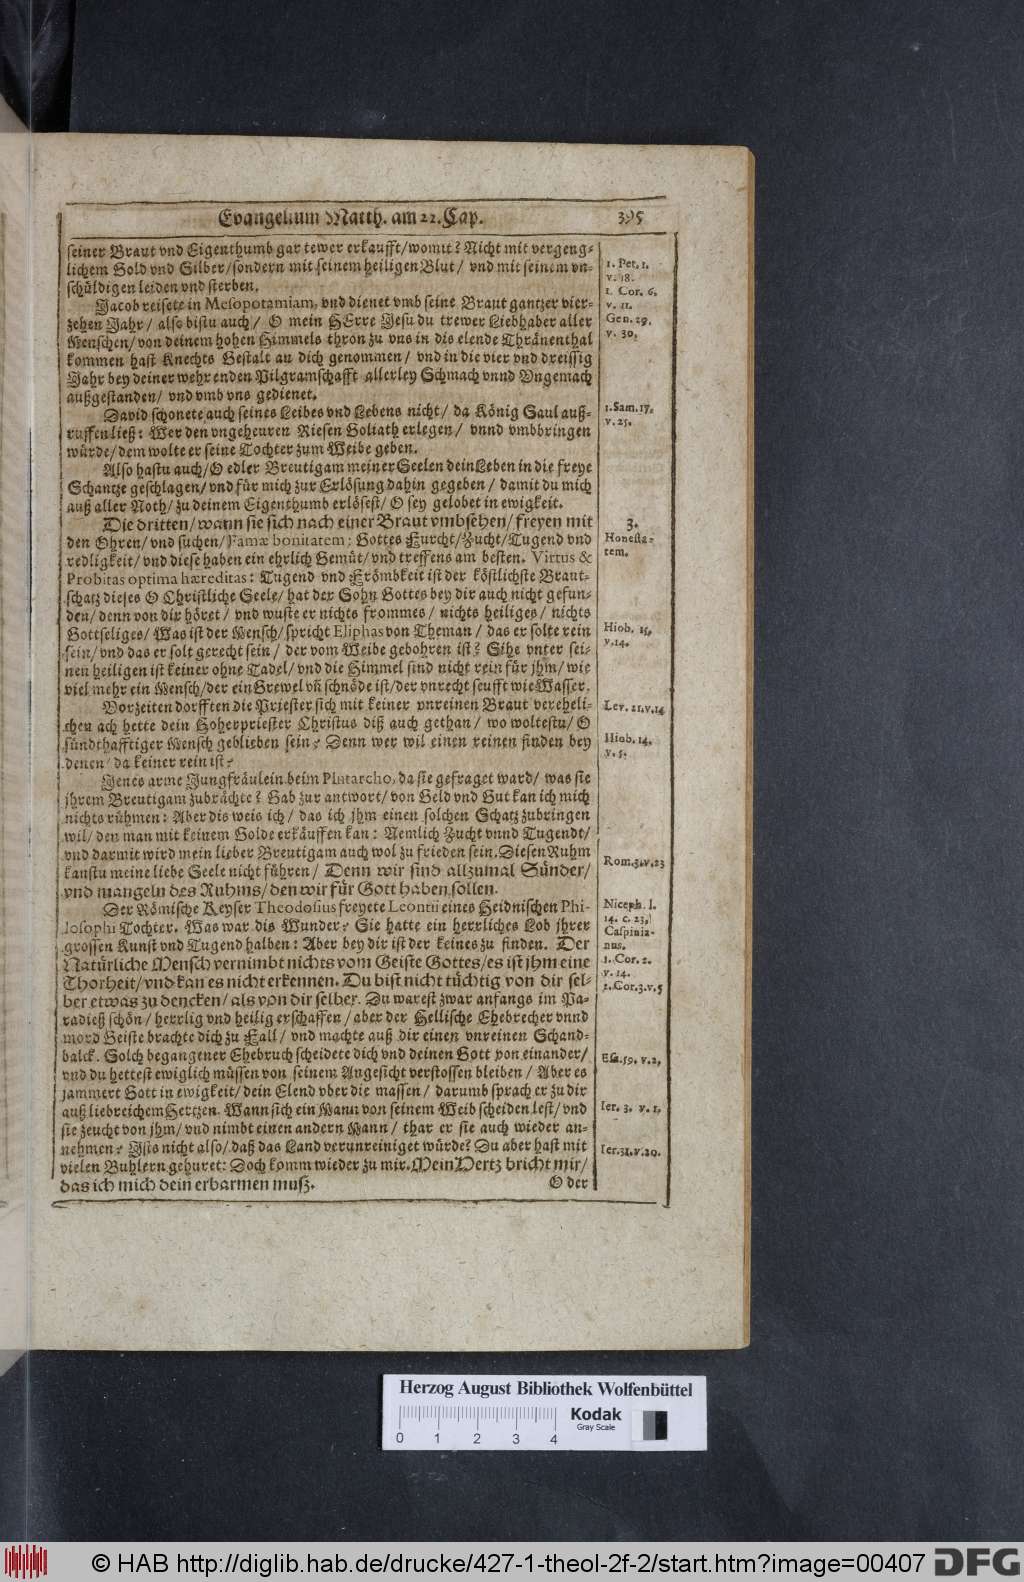 Evangelium Matth. am 22. Cap. 395
seiner Braut vnd Eigenthumb gar tewer erkaufft/ womit? Nicht mit vergeng-
lichem Gold vnd Silber/ sondern mit seinem heiligen Blut/ vnd mit seinem vn-
schüldigen leiden vnd sterben.
Jacob reisete in Mesopotamiam, vnd dienet vmb seine Braut gantzer vier-
zehen Jahr/ also bistu auch/ O mein HErre Jesu du trewer Liebhaber aller
Menschen/ von deinem hohen Himmels thron zu vns in dis elende Thränenthal
kommen hast Knechts Gestalt an dich genommen/ vnd in die vier vnd dreissig
Jahr bey deiner wehrenden Pilgramschafft allerley Schmach vnnd Vngemach
außgestanden/ vnd vmb vns gedienet.
David schonete auch seines Leibes vnd Lebens nicht/ da König Saul auß-
ruffen ließ: Wer den vngeheuren Riesen Goliath erlegen/ vnnd vmbbringen
würde/ dem wolte er seine Tochter zum Weibe geben.
Also hastu auch/ O edler Breutigam meiner Seelen dein Leben in die freye
Schantze geschlagen/ vnd für mich zur Erlösung dahin gegeben/ damit du mich
auß aller Noth/ zu deinem Eigenthumb erlösest/ O sey gelobet in ewigkeit.
Die dritten/ wann sie sich nach einer Braut vmbsehen/ freyen mit
den Ohren/ vnd suchen/ Famæ bonitatem: Gottes Furcht/ Zucht/ Tugend vnd
redligkeit/ vnd diese haben ein ehrlich Gemüt/ vnd treffens am besten. Virtus &
Probitas optima hæreditas: Tugend vnd Frömbkeit ist der köstlichste Braut-
schatz dieses O Christliche Seele/ hat der Sohn Gottes bey dir auch nicht gefun-
den/ denn von dir höret/ vnd wuste er nichts frommes/ nichts heiliges/ nichts
Gottseliges/ Was ist der Mensch/ spricht Eliphas von Theman/ das er solte rein
sein/ vnd das er solt gerecht sein/ der vom Weibe gebohren ist? Sihe vnter sei-
nen heiligen ist keiner ohne Tadel/ vnd die Himmel sind nicht rein für jhm/ wie
viel mehr ein Mensch/ der ein Grewel vñ schnöde ist/ der vnrecht seufft wie Wasser.
Vorzeiten dorfften die Priester sich mit keiner vnreinen Braut verehelì-
chen ach hette dein Hoherpriester Christus diß auch gethan/ wo woltestu/ O
sündthafftiger Mensch geblieben sein? Denn wer wil einen reinen finden bey
denen/ da keiner rein ist?
Jenes arme Jungfräulein beim Plutarcho, da sie gefraget ward/ was sie
jhrem Breutigam zubrächte? Gab zur antwort/ von Geld vnd Gut kan ich mich
nichts rühmen: Aber dis weis ich/ das ich jhm einen solchen Schatz zubringen
wil/ den man mit keinem Golde erkäuffen kan: Nemlich Zucht vnnd Tugendt/
vnd darmit wird mein lieber Breutigam auch wol zu frieden sein. Diesen Ruhm
kanstu meine liebe Seele nicht führen/ Denn wir sind allzumal Sünder/
vnd mangeln des Ruhms/ den wir für Gott haben sollen.
Der Römische Keyser Theodosius freyete Leontii eines Heidnischen Phi-
losophi Tochter. Was war dis Wunder? Sie hatte ein herrliches Lob jhrer
grossen Kunst vnd Tugend halben: Aber bey dir ist der keines zu finden. Der
Natürliche Mensch vernimbt nichts vom Geiste Gottes/ es ist jhm eine
Thorheit/ vnd kan es nicht erkennen. Du bist nicht tüchtig von dir sel-
ber etwas zu dencken/ als von dir selber. Du warest zwar anfangs im Pa-
radieß schön/ herrlig vnd heilig erschaffen/ aber der Hellische Ehebrecher vnnd
mord Geiste brachte dich zu Fall/ vnd machte auß dir einen vnreinen Schand-
balck. Solch begangener Ehebruch scheidete dich vnd deinen Gott von einander/
vnd du hettest ewiglich müssen von seinem Angesicht verstossen bleiben/ Aber es
jammert Gott in ewigkeit/ dein Elend vber die massen/ darumb sprach er zu dir
auß liebreichem Hertzen. Wann sich ein Mann von seinem Weib scheiden lest/ vnd
sie zeucht von jhm/ vnd nimbt einen andern Mann/ thar er sie auch wieder an-
nehmen? Ists nicht also/ daß das Land verunreiniget würde? Du aber hast mit
vielen Buhlern gehuret: Doch komm wieder zu mir. Mein Hertz bricht mir/
das ich mich dein erbarmen muß.
O der
1. Pet. 1.
v. 18.
1. Cor. 6.
v. 11.
Gen. 29.
v. 30.
1. Sam. 17.
v. 25.
3.
Honesta-
tem.
Hiob. 15.
v. 14.
Lev. 21. v. 14
Hiob. 14.
v. 5.
Rom. 3. v. 23
Niceph. l.
14. c. 23,
Caspinia-
nus.
1. Cor. 2.
v. 14.
2. Cor. 3. v. 5
Esa. 59. v. 2,
Ier. 3. v. 1,
Ier. 31. v. 20.
Herzog August Bibliothek Wolfenbüttel
Kodak
Gray Scale
0 1 2 3 4
© HAB http://diglib.hab.de/drucke/427-1-theol-2f-2/start.htm?image=00407
DFG